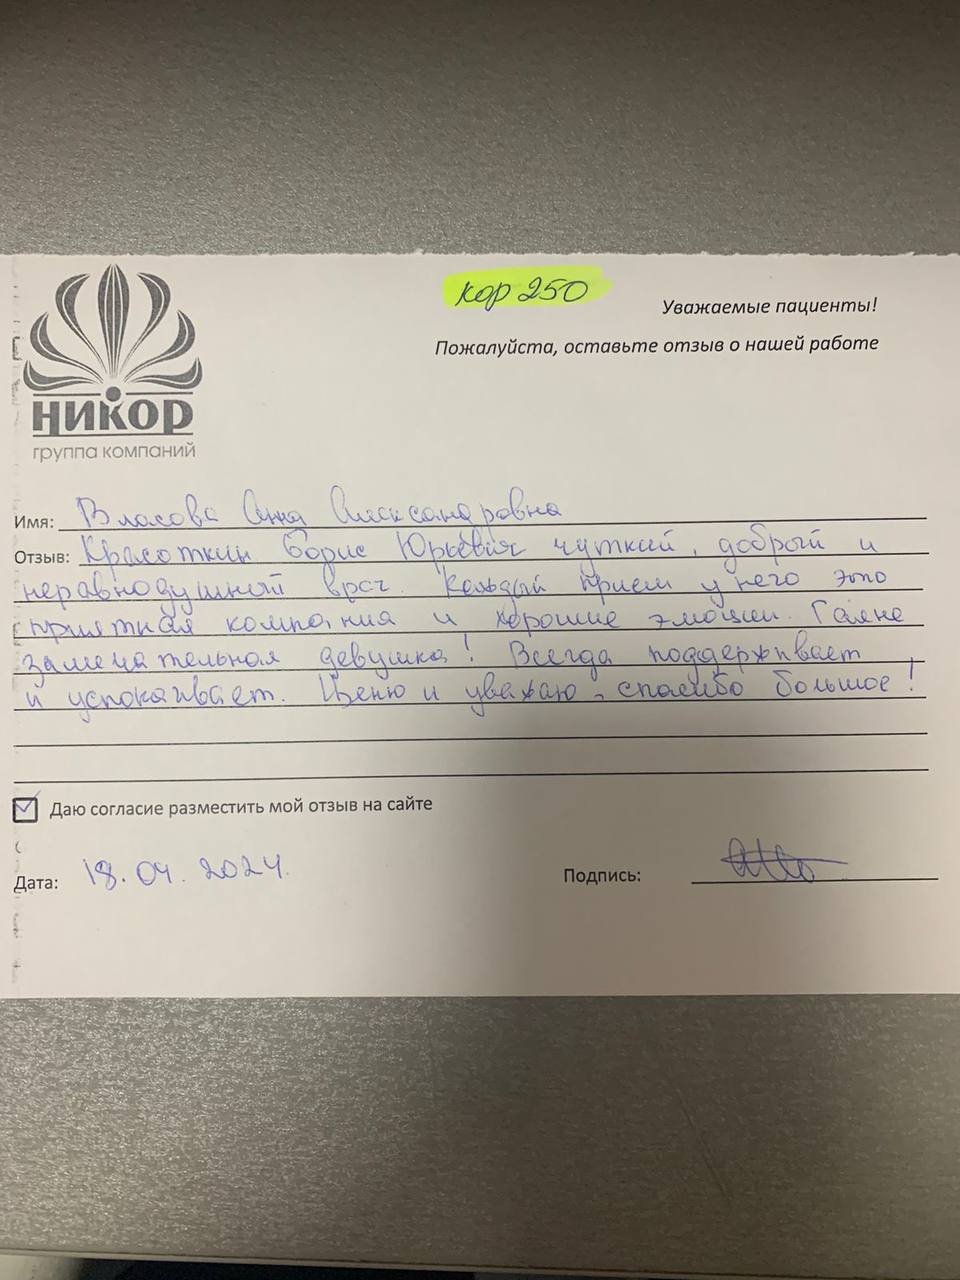 кор 250
Уважаемые пациенты!
Пожалуйста, оставьте отзыв о нашей работе
НИКОР
группа компаний
Имя: Власова Анна Александровна
Отзыв: Красоткин Борис Юрьевич чуткий, добрый и
неравнодушный врач. Каждый прием у него это
приятная компания и хорошие эмоции. Гаяне
замечательная девушка! Всегда поддерживает
и успокаивает. Ценю и уважаю, спасибо большое!
Даю согласие разместить мой отзыв на сайте
Дата: 18.04.2024.
Подпись: